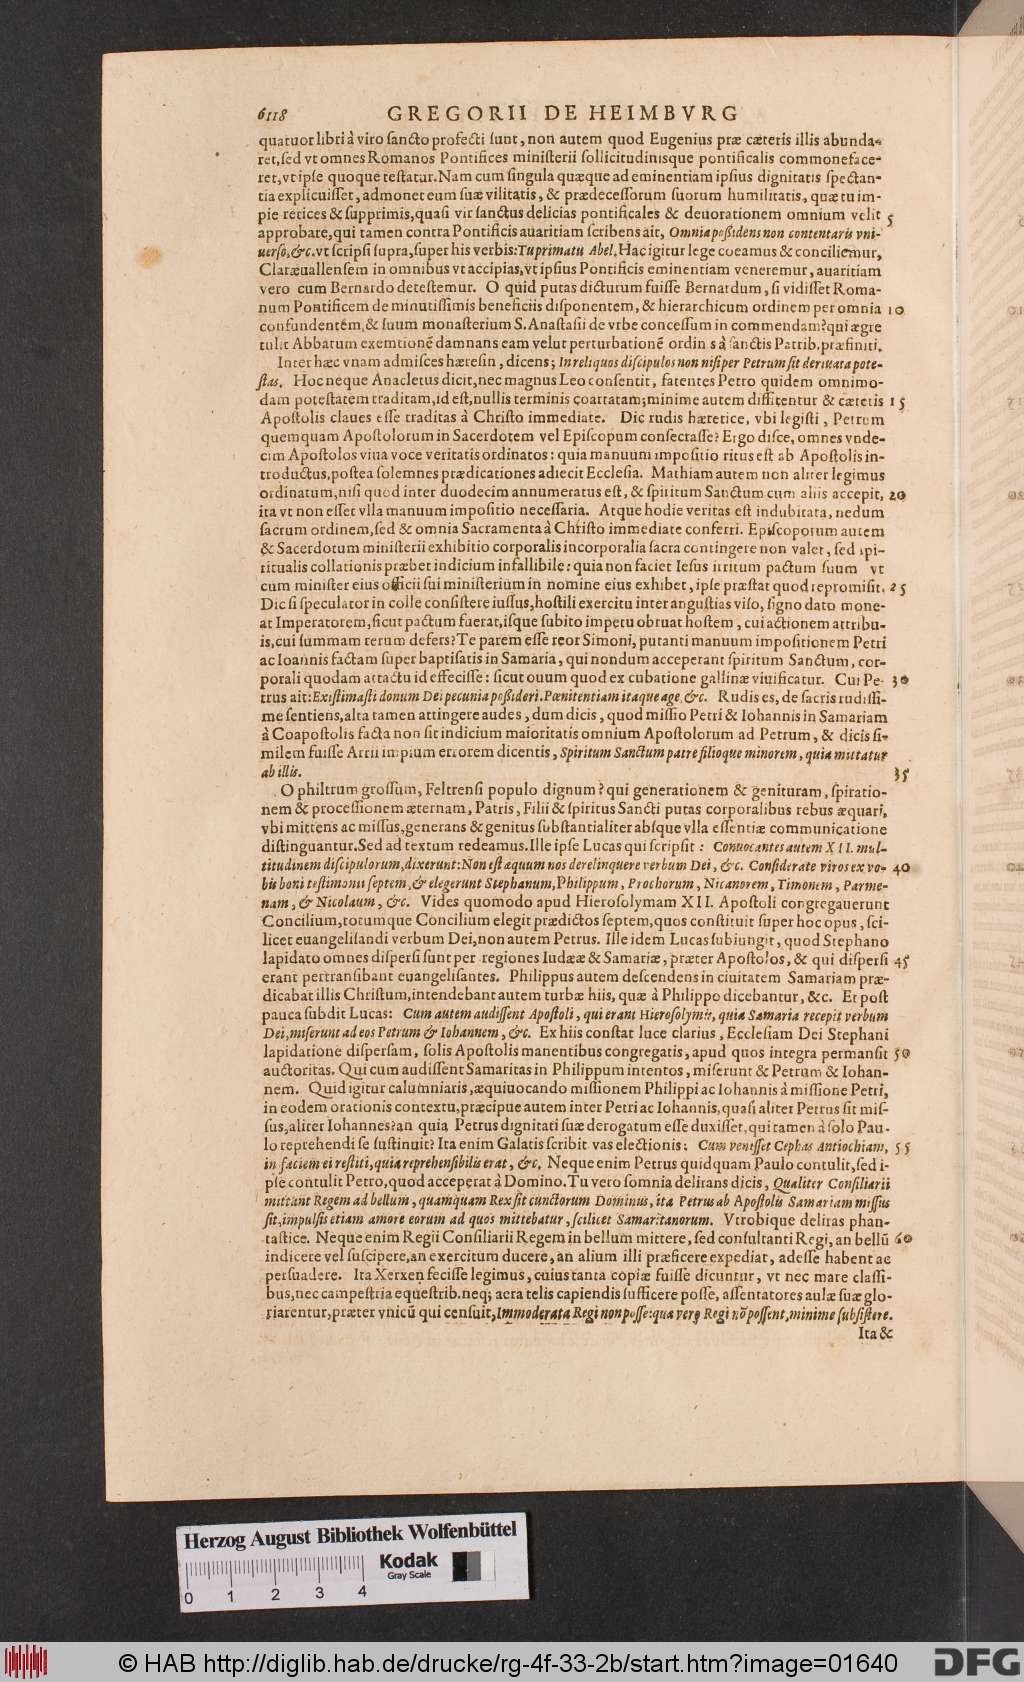 6118 GREGORII DE HEIMBVRG
quatuor libri à viro sancto profecti sunt, non autem quod Eugenius præ cæteris illis abunda-
ret, sed vt omnes Romanos Pontifices ministerii sollicitudinisque pontificalis commoneface-
ret, vt ipse quoque testatur. Nam cum singula quæque ad eminentiam ipsius dignitatis spectan-
tia explicuisset, admonet eum suæ vilitatis, & prædecessorum suorum humilitatis, quæ tu im-
pie retices & supprimis, quasi vir sanctus delicias pontificales & deuorationem omnium velit 5
approbare, qui tamen contra Pontificis auaritiam scribens ait, Omnia possidens non contentaris vni-
uerso, &c. vt scripsi supra, super his verbis: Tu primatu Abel. Hac igitur lege coeamus & conciliemur,
Claræuallensem in omnibus vt accipias, vt ipsius Pontificis eminentiam veneremur, auaritiam
vero cum Bernardo detestemur. O quid putas dicturum fuisse Bernardum, si vidisset Roma-
num Pontificem de minutissimis beneficiis disponentem, & hierarchicum ordinem per omnia 10
confundentem, & suum monasterium S. Anastasii de vrbe concessum in commendam? qui ægre
tulit Abbatum exemtionē damnans eam velut perturbationē ordinis à sanctis Patrib. præfiniti.
Inter hæc vnam admisces hæresin, dicens; In reliquos discipulos non nisi per Petrum sit deriuata pote-
stas. Hoc neque Anacletus dicit, nec magnus Leo consentit, fatentes Petro quidem omnimo-
dam potestatem traditam, id est, nullis terminis coarctatam; minime autem diffitentur & cæteris 15
Apostolis claues esse traditas à Christo immediate. Dic rudis hæretice, vbi legisti, Petrum
quemquam Apostolorum in Sacerdotem vel Episcopum consecrasse? Ergo disce, omnes vnde-
cim Apostolos viua voce veritatis ordinatos: quia manuum impositio ritus est ab Apostolis in-
troductus, postea solemnes prædicationes adiecit Ecclesia. Mathiam autem non aliter legimus
ordinatum, nisi quod inter duodecim annumeratus est, & spiritum Sanctum cum aliis accepit, 20
ita vt non esset vlla manuum impositio necessaria. Atque hodie veritas est indubitata, nedum
sacrum ordinem, sed & omnia Sacramenta à Christo immediate conferri. Episcoporum autem
& Sacerdotum ministerii exhibitio corporalis incorporalia sacra contingere non valet, sed spi-
ritualis collationis præbet indicium infallibile: quia non faciet Iesus irritum pactum suum vt
cum minister eius officii sui ministerium in nomine eius exhibet, ipse præstat quod repromisit. 25
Dic si speculator in colle consistere iussus, hostili exercitu inter angustias viso, signo dato mone-
at Imperatorem, sicut pactum fuerat, isque subito impetu obruat hostem, cui actionem attribu-
is, cui summam rerum defers? Te parem esse reor Simoni, putanti manuum impositionem Petri
ac Ioannis factam super baptisatis in Samaria, qui nondum acceperant spiritum Sanctum, cor-
porali quodam attactu id effecisse: sicut ouum quod ex cubatione gallinæ viuificatur. Cui Pe- 30
trus ait: Existimasti donum Dei pecunia possideri. Pœnitentiam itaque age, &c. Rudis es, de sacris rudissi-
me sentiens, alta tamen attingere audes, dum dicis, quod missio Petri & Iohannis in Samariam
à Coapostolis facta non sit indicium maioritatis omnium Apostolorum ad Petrum, & dicis si-
milem fuisse Arrii impium errorem dicentis, Spiritum Sanctum patre filioque minorem, quia mittatur
ab illis. 35
O philtrum grossum, Feltrensi populo dignum? qui generationem & genituram, spiratio-
nem & processionem æternam, Patris, Filii & spiritus Sancti putas corporalibus rebus æquari,
vbi mittens ac missus, generans & genitus substantialiter absque vlla essentiæ communicatione
distinguantur. Sed ad textum redeamus. Ille ipse Lucas qui scripsit: Conuocantes autem XII. mul-
titudinem discipulorum, dixerunt: Non est æquum nos derelinquere verbum Dei, &c. Considerate viros ex vo- 40
bis boni testimonii septem, & elegerunt Stephanum, Philippum, Prochorum, Nicanorem, Timonem, Parme-
nam, & Nicolaum, &c. Vides quomodo apud Hierosolymam XII. Apostoli congregauerunt
Concilium, totumque Concilium elegit prædictos septem, quos constituit super hoc opus, sci-
licet euangelisandi verbum Dei, non autem Petrus. Ille idem Lucas subiungit, quod Stephano
lapidato omnes dispersi sunt per regiones Iudææ & Samariæ, præter Apostolos, & qui dispersi 45
erant pertransibant euangelisantes. Philippus autem descendens in ciuitatem Samariam præ-
dicabat illis Christum, intendebant autem turbæ hiis, quæ à Philippo dicebantur, &c. Et post
pauca subdit Lucas: Cum autem audissent Apostoli, qui erant Hierosolymis, quia Samaria recepit verbum
Dei, miserunt ad eos Petrum & Iohannem, &c. Ex hiis constat luce clarius, Ecclesiam Dei Stephani
lapidatione dispersam, solis Apostolis manentibus congregatis, apud quos integra permansit 50
auctoritas. Qui cum audissent Samaritas in Philippum intentos, miserunt & Petrum & Iohan-
nem. Quid igitur calumniaris, æquiuocando missionem Philippi ac Iohannis à missione Petri,
in eodem orationis contextu, præcipue autem inter Petri ac Iohannis, quasi aliter Petrus sit mis-
sus, aliter Iohannes? an quia Petrus dignitati suæ derogatum esse duxisset, qui tamen à solo Pau-
lo reprehendi se sustinuit? Ita enim Galatis scribit vas electionis: Cum venisset Cephas Antiochiam, 55
in faciem ei restiti, quia reprehensibilis erat, &c. Neque enim Petrus quidquam Paulo contulit, sed i-
pse contulit Petro, quod acceperat à Domino. Tu vero somnia delirans dicis, Qualiter Consiliarii
mittunt Regem ad bellum, quamquam Rex sit cunctorum Dominus, ita Petrus ab Apostolis Samariam missus
sit, impulsis etiam amore eorum ad quos mittebatur, scilicet Samaritanorum. Vtrobique deliras phan-
tastice. Neque enim Regii Consiliarii Regem in bellum mittere, sed consultanti Regi, an bellū 60
indicere vel suscipere, an exercitum ducere, an alium illi præficere expediat, adesse habent ac
persuadere. Ita Xerxen fecisse legimus, cuius tanta copiæ fuisse dicuntur, vt nec mare classi-
bus, nec campestria equestrib. neq; aera telis capiendis sufficere posse, assentatores aulæ suæ glo-
riarentur, præter vnicū qui censuit, Immoderata Regi non posse: qua vero Regi nō possent, minime subsistere.
Ita &
Herzog August Bibliothek Wolfenbüttel
Kodak
Gray Scale
0 1 2 3 4
© HAB http://diglib.hab.de/drucke/rg-4f-33-2b/start.htm?image=01640
DFG